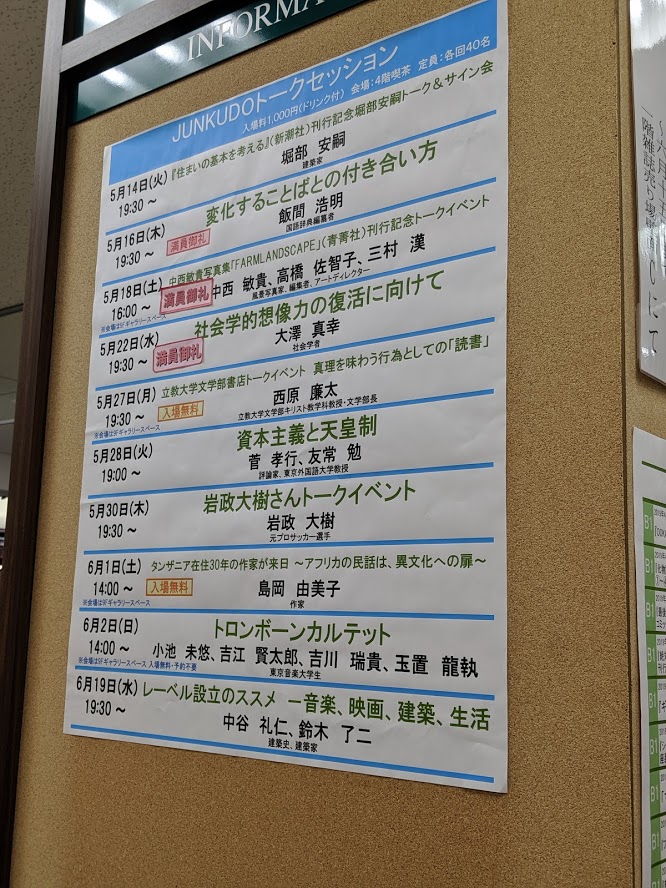 INFORMA
JUNKUDOトークセッション
入場料1,000円(ドリンク付) 会場:4階喫茶 定員:各回40名
5月14日(火)
19:30 ~
『住まいの基本を考える』(新潮社)刊行記念堀部安嗣トーク&サイン会
堀部 安嗣
建築家
5月16日(木)
19:30 ~
満員御礼
変化することばとの付き合い方
飯間 浩明
国語辞典編纂者
5月18日(土)
16:00 ~
※会場は9Fギャラリースペース
満員御礼
中西敏貴写真集「FARMLANDSCAPE」(青菁社)刊行記念トークイベント
中西 敏貴、高橋 佐智子、三村 漢
風景写真家、編集者、アートディレクター
5月22日(水)
19:30 ~
満員御礼
社会学的想像力の復活に向けて
大澤 真幸
社会学者
5月27日(月)
19:30 ~
※会場は9Fギャラリースペース
入場無料
立教大学文学部書店トークイベント 真理を味わう行為としての「読書」
西原 廉太
立教大学文学部キリスト教学科教授・文学部長
5月28日(火)
19:00 ~
資本主義と天皇制
菅 孝行、友常 勉
評論家、東京外国語大学教授
5月30日(木)
19:30 ~
岩政大樹さんトークイベント
岩政 大樹
元プロサッカー選手
6月1日(土)
14:00 ~
※会場は9Fギャラリースペース
入場無料
タンザニア在住30年の作家が来日 ~アフリカの民話は、異文化への扉~
島岡 由美子
作家
6月2日(日)
14:00 ~
※会場は9Fギャラリースペース 入場無料・予約不要
トロンボーンカルテット
小池 未悠、吉江 賢太郎、吉川 瑞貴、玉置 龍執
東京音楽大学生
6月19日(水)
19:30 ~
レーベル設立のススメ ー音楽、映画、建築、生活
中谷 礼仁、鈴木 了二
建築史、建築家
B1
B1
B1
B1
B1
B1
B1
B1
B1